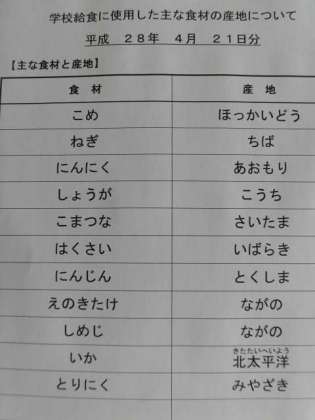 学校給食に使用した主な食材の産地について
平成　２８年　４月　２１日分
【主な食材と産地】
食　材　産　地
こめ　ほっかいどう
ねぎ　ちば
にんにく　あおもり
しょうが　こうち
こまつな　さいたま
はくさい　いばらき
にんじん　とくしま
えのきたけ　ながの
しめじ　ながの
きたたいへいよう
いか　北太平洋
とりにく　みやざき